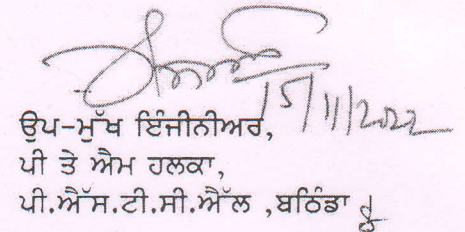 15/11/2022
ਉਪ-ਮੁੱਖ ਇੰਜੀਨੀਅਰ,
ਪੀ ਤੇ ਐਮ ਹਲਕਾ,
ਪੀ.ਐੱਸ.ਟੀ.ਸੀ.ਐੱਲ ,ਬਠਿੰਡਾ